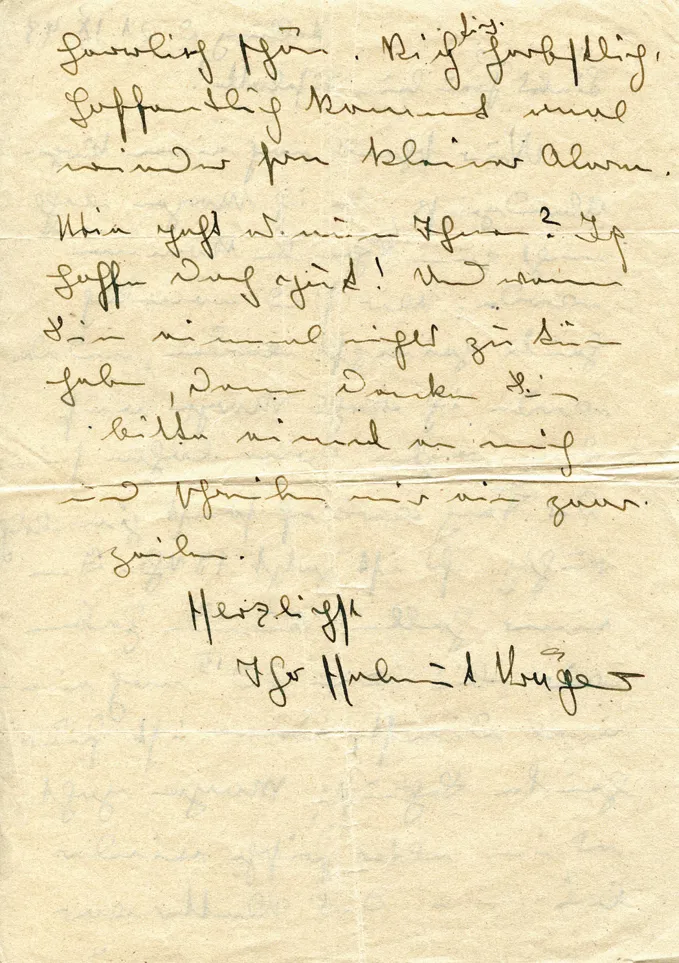 herrlich schön. Richtig herbstlich.
Hoffentlich kommt mal
wieder kleiner Alarm.
Wie geht es Ihnen? Ich
hoffe doch gut! Und wenn
Sie einmal nichts zu tun
haben, dann denken Sie
bitte einmal an mich
und schreiben mir ein paar
Zeilen.
Herzlichst
Ihr Helmut Krüger